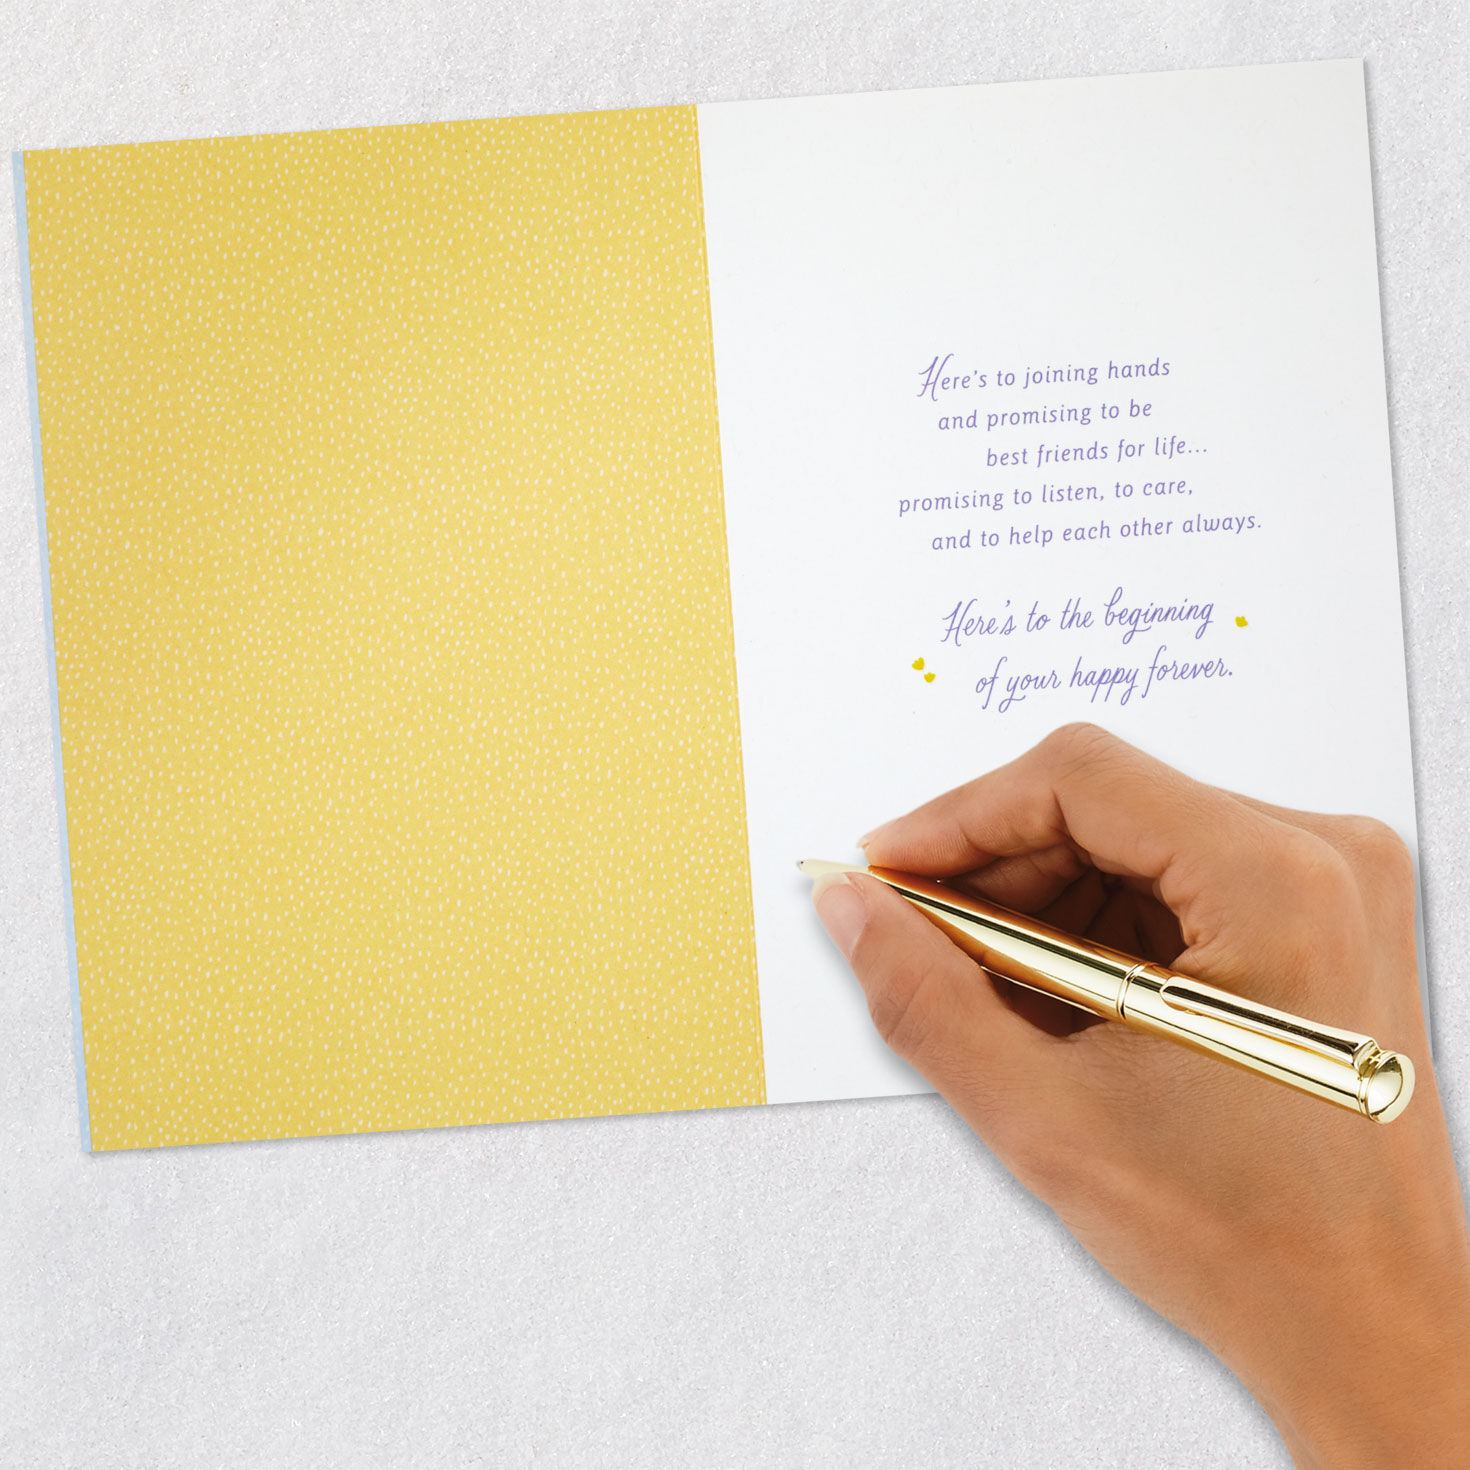 Here's to joining hands
and promising to be
best friends for life...
promising to listen, to care,
and to help each other always.
Here's to the beginning
of your happy forever.